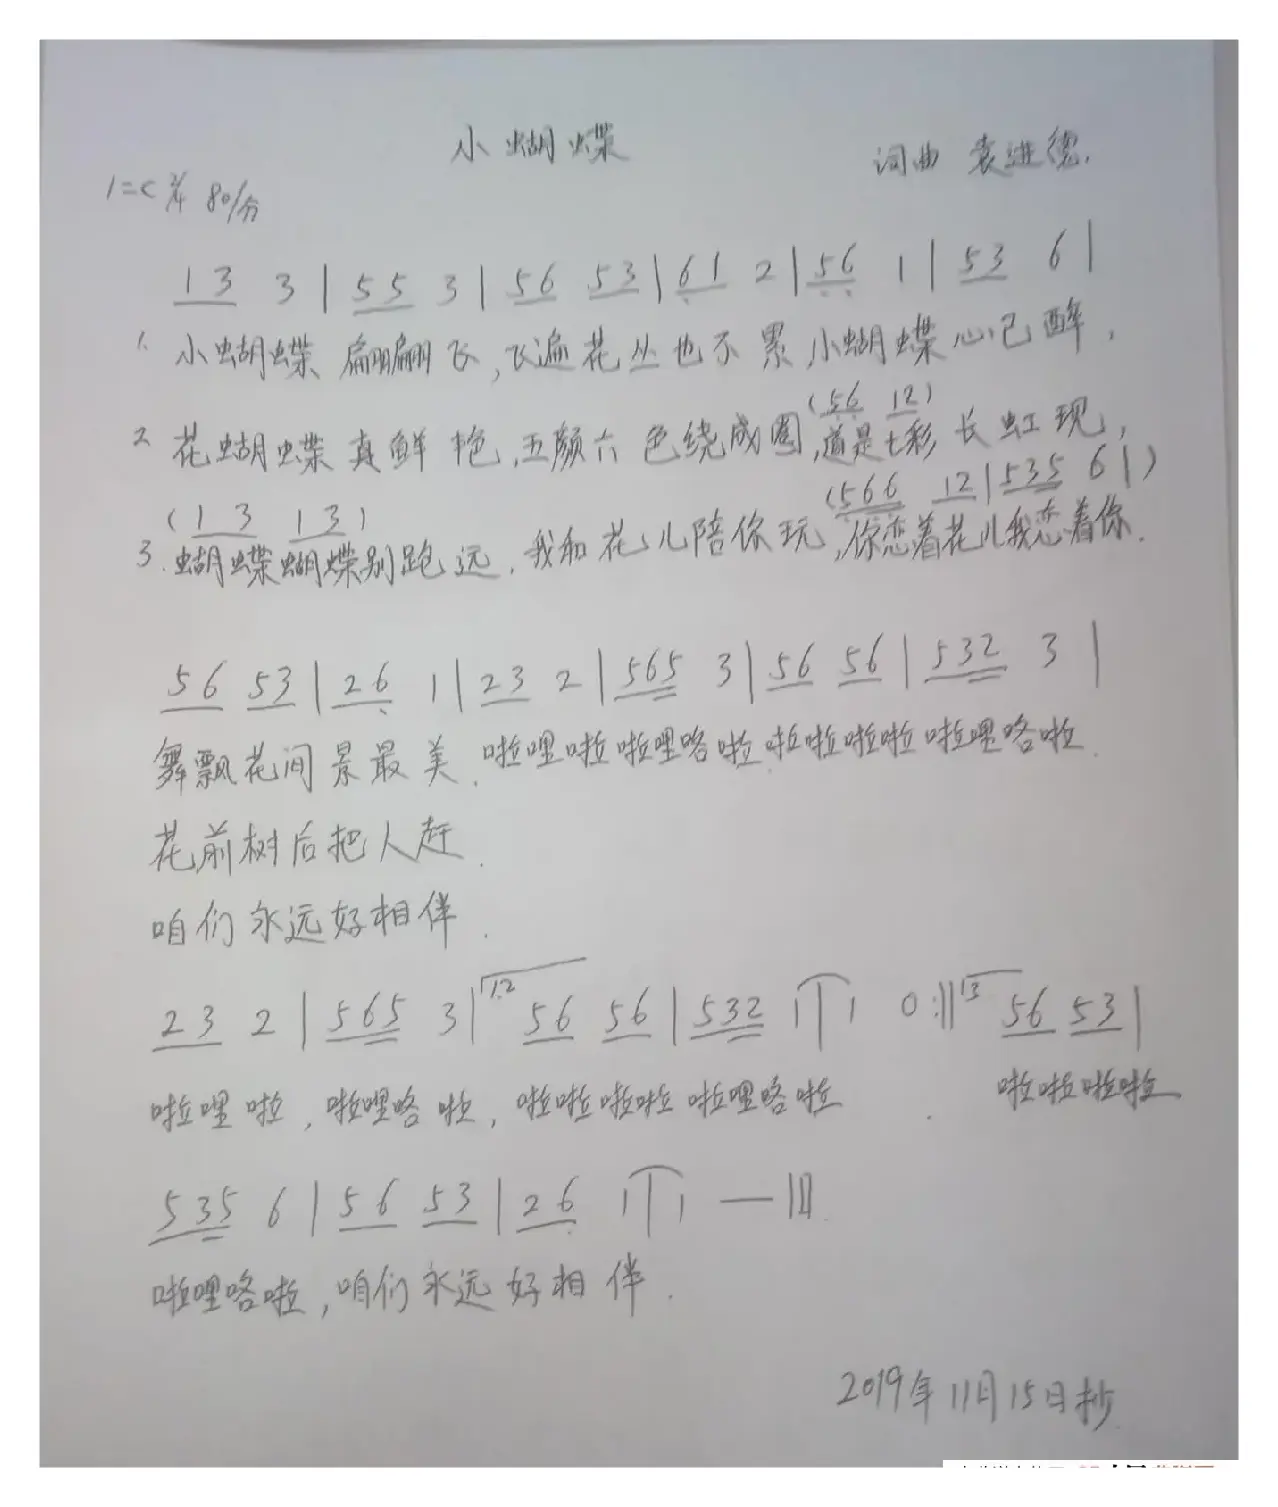 小蝴蝶
词曲 袁进德.
1=C 2/4 80/分
1 3 3 | 5 5 3 | 5 6 5 3 | 6 1 2 | 5 6 1 | 5 3 6 |
1. 小蝴蝶 翩翩飞,飞遍花丛也不累,小蝴蝶心已醉,
(5 6 1 2)
2 花蝴蝶真鲜艳,五颜六色绕成圈,道是七彩长虹现,
(1 3 1 3) (5 6 6 1 2 | 5 3 5 6 | )
3. 蝴蝶蝴蝶别跑远,我和花儿陪你玩,你恋着花儿我恋着你.
5 6 5 3 | 2 6 1 | 2 3 2 | 5 6 5 3 | 5 6 5 6 | 5 3 2 3 |
舞飘花间景最美.啦哩啦啦哩咯啦.啦啦啦啦啦哩咯啦.
花前树后把人赶.
咱们永远好相伴.
2 3 2 | 5 6 5 3 | 1.2 5 6 5 6 | 5 3 2 1 | 1 0 :|| 3 5 6 5 3 |
啦哩啦,啦哩咯啦,啦啦啦啦啦哩咯啦. 啦啦啦啦
5 3 5 6 | 5 6 5 3 | 2 6 1 | 1 — ||
啦哩咯啦,咱们永远好相伴.
2019年11月15日抄